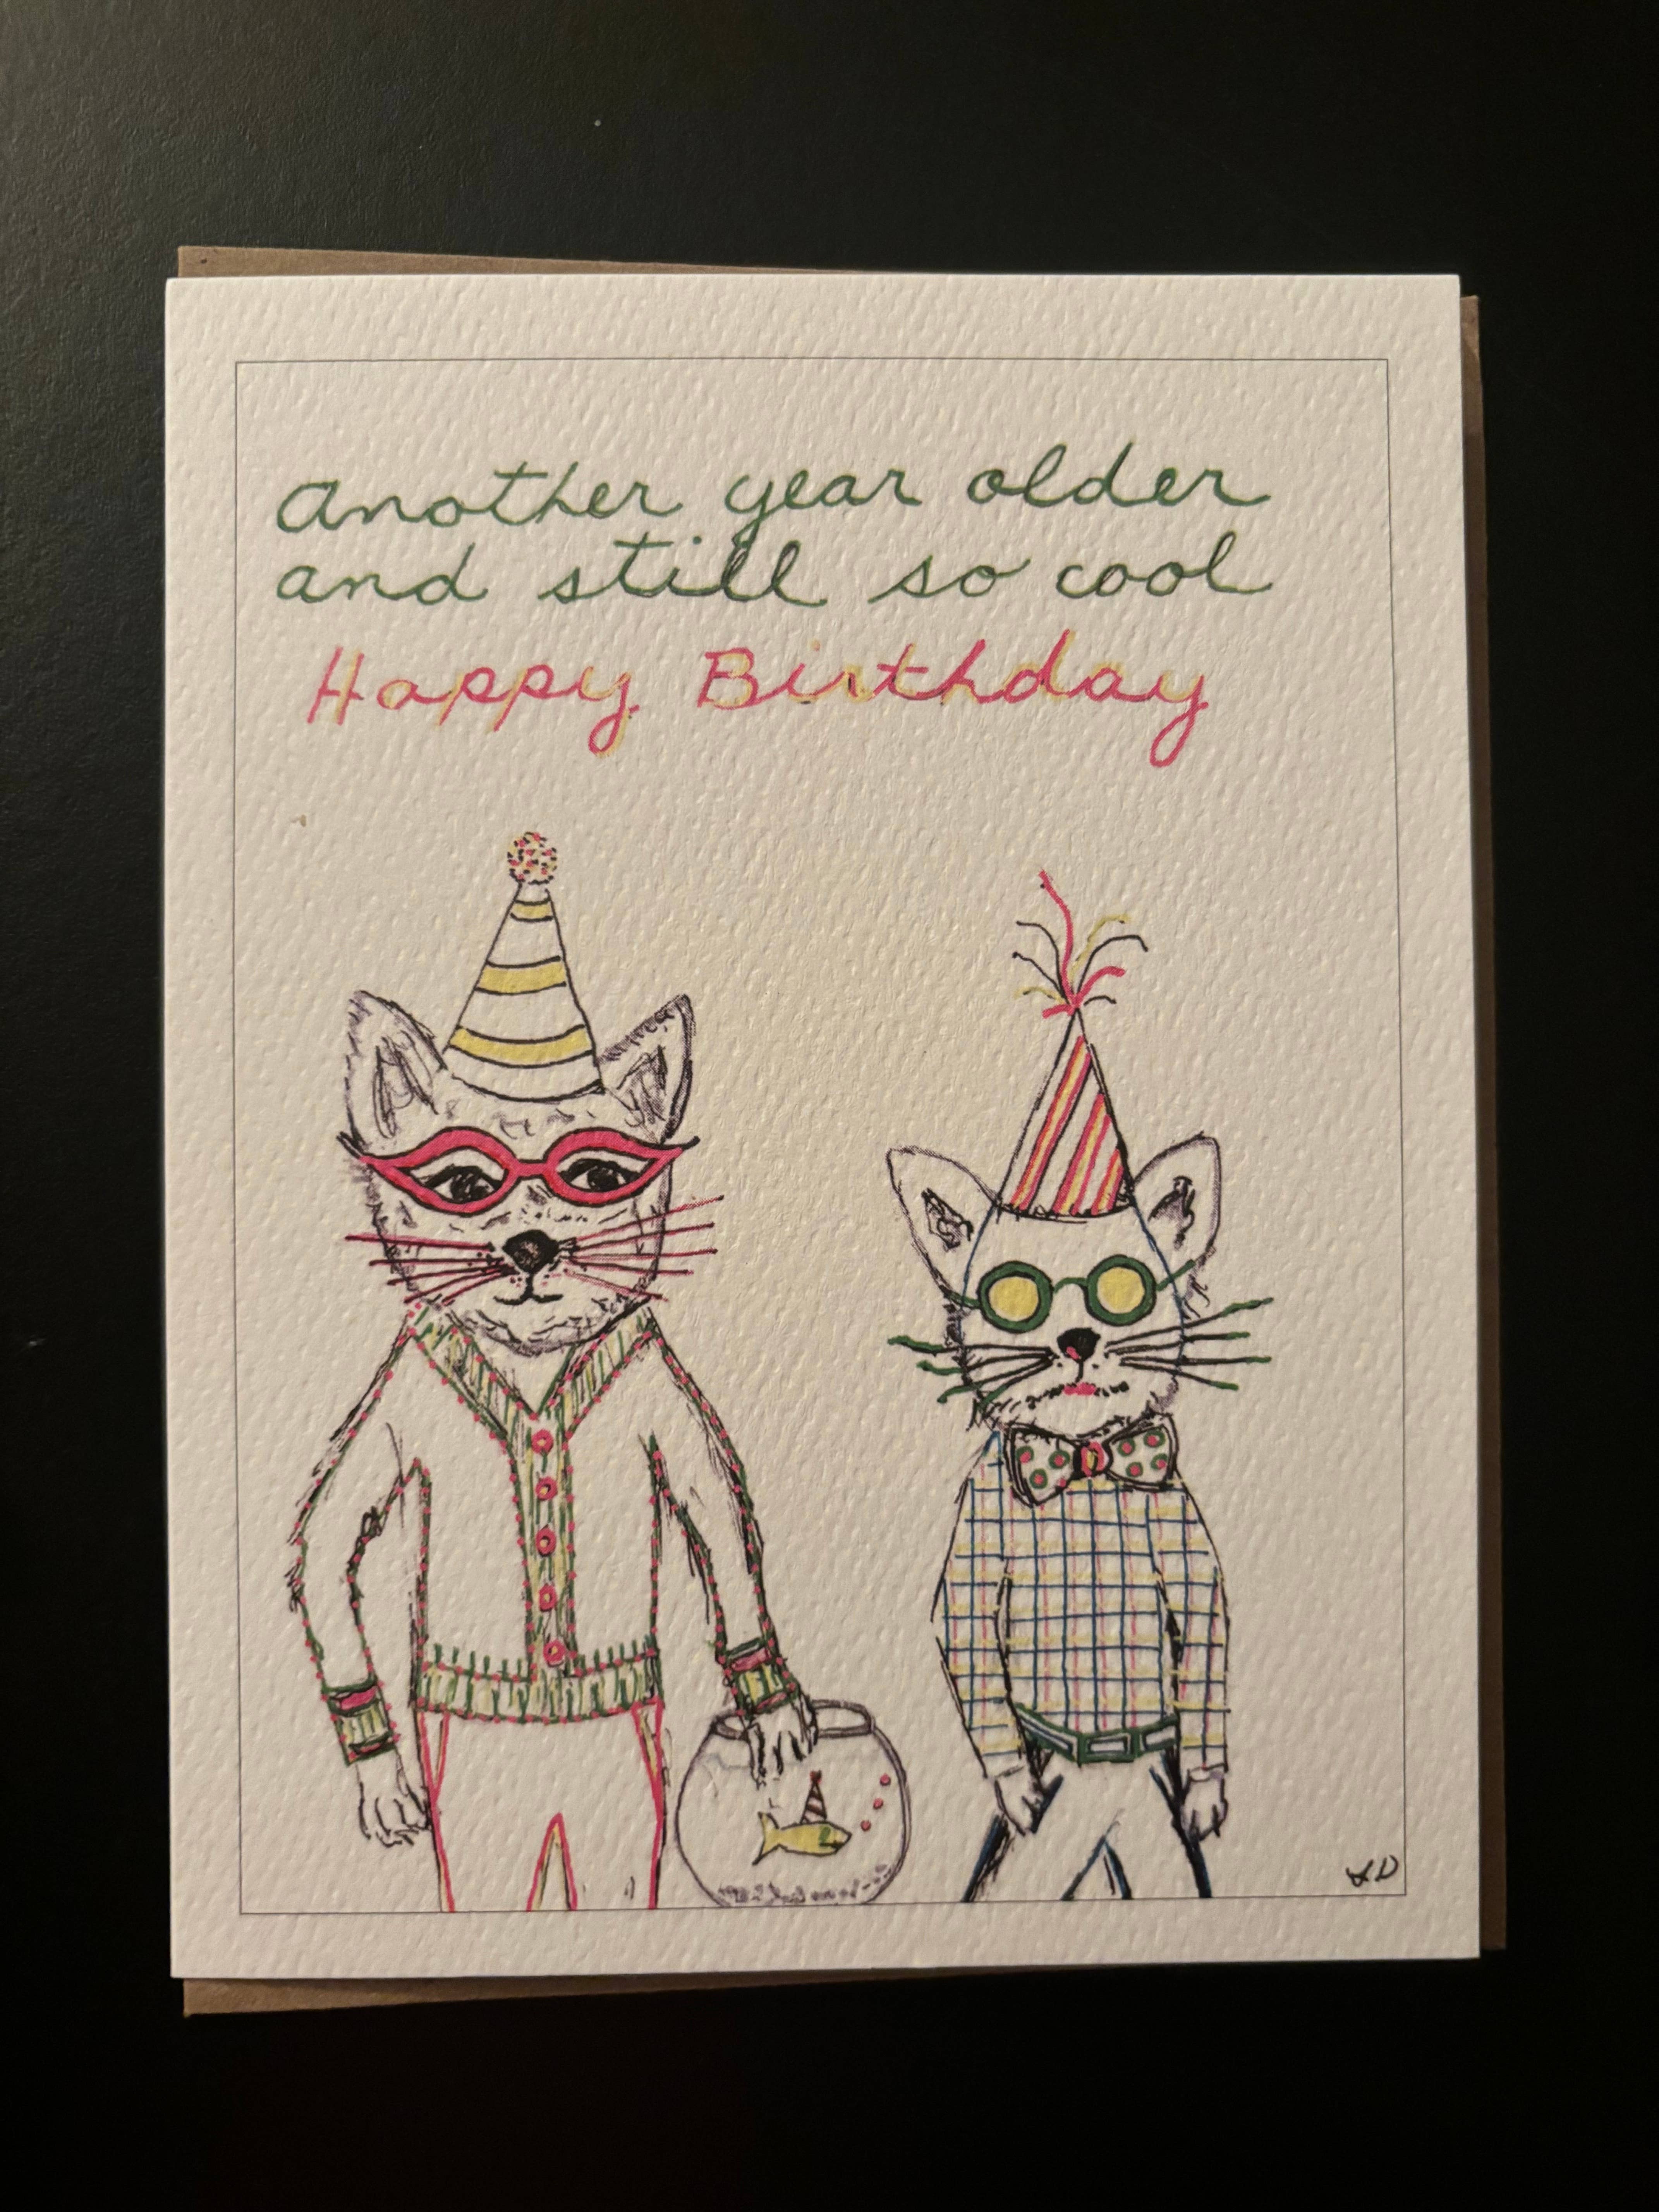 Another year older
and still so cool
Happy Birthday
LD